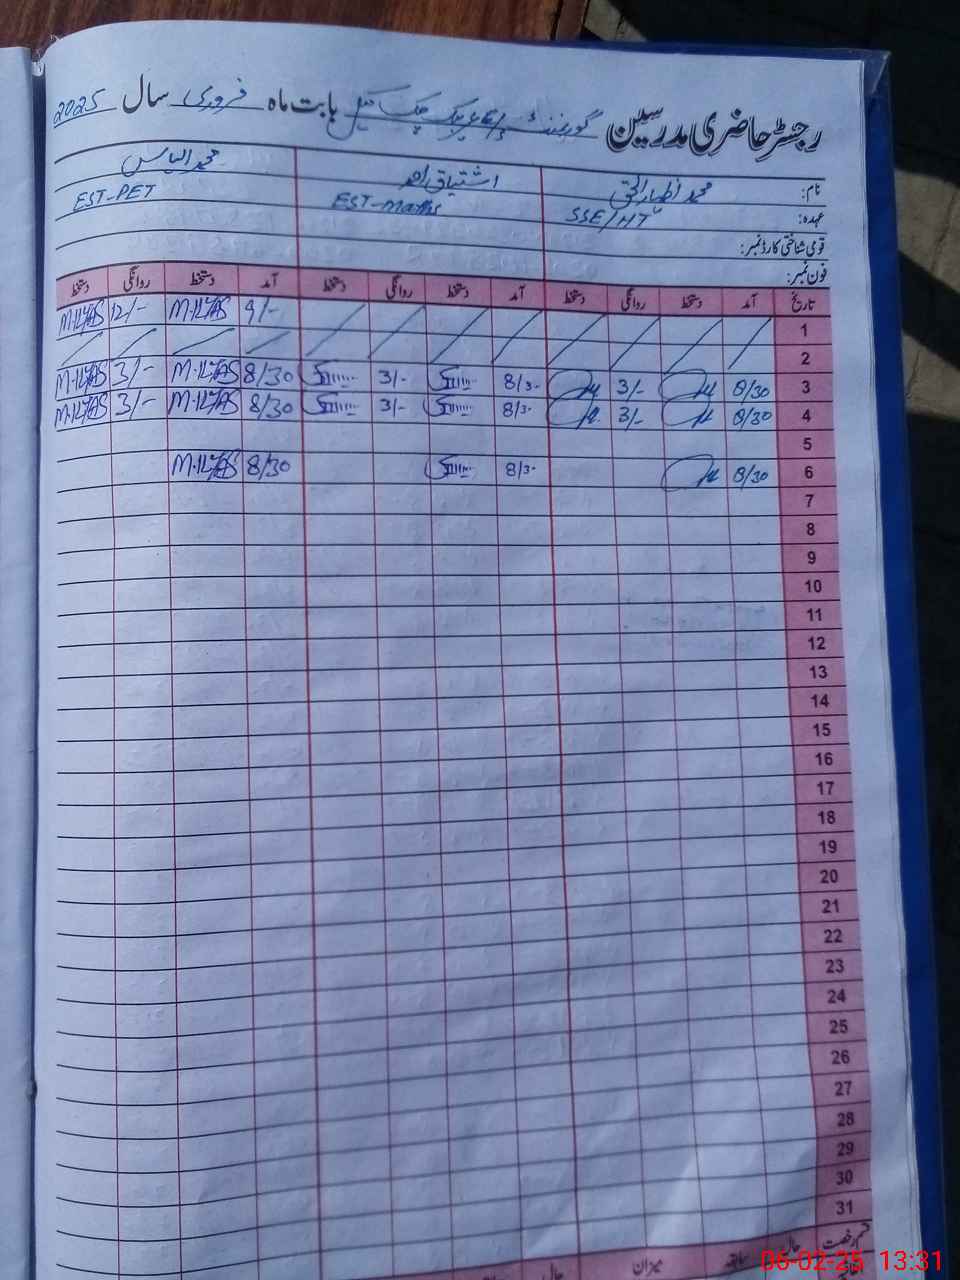 رجسٹر حاضری مدرسین گورنمنٹ بابت ماہ فروری سال 2025
نام: محمد اظہار الحق اشتیاق احمد محمد الیاس
عہدہ: SSE/HT EST-Maths EST-PET
قومی شناختی کارڈ نمبر:
فون نمبر:
تاریخ آمد دستخط روانگی دستخط آمد دستخط روانگی دستخط آمد دستخط روانگی دستخط
1 9/- M.ILYAS 12/- M.ILYAS
2
3 8/30 3/- 8/3- 3/- 8/30 M.ILYAS 3/- M.ILYAS
4 8/30 3/- 8/3- 3/- 8/30 M.ILYAS 3/- M.ILYAS
5
6 8/30 8/3- 8/30 M.ILYAS
7
8
9
10
11
12
13
14
15
16
17
18
19
20
21
22
23
24
25
26
27
28
29
30
31
قسم رخصت حال سابقہ میزان حال
06-02-25 13:31